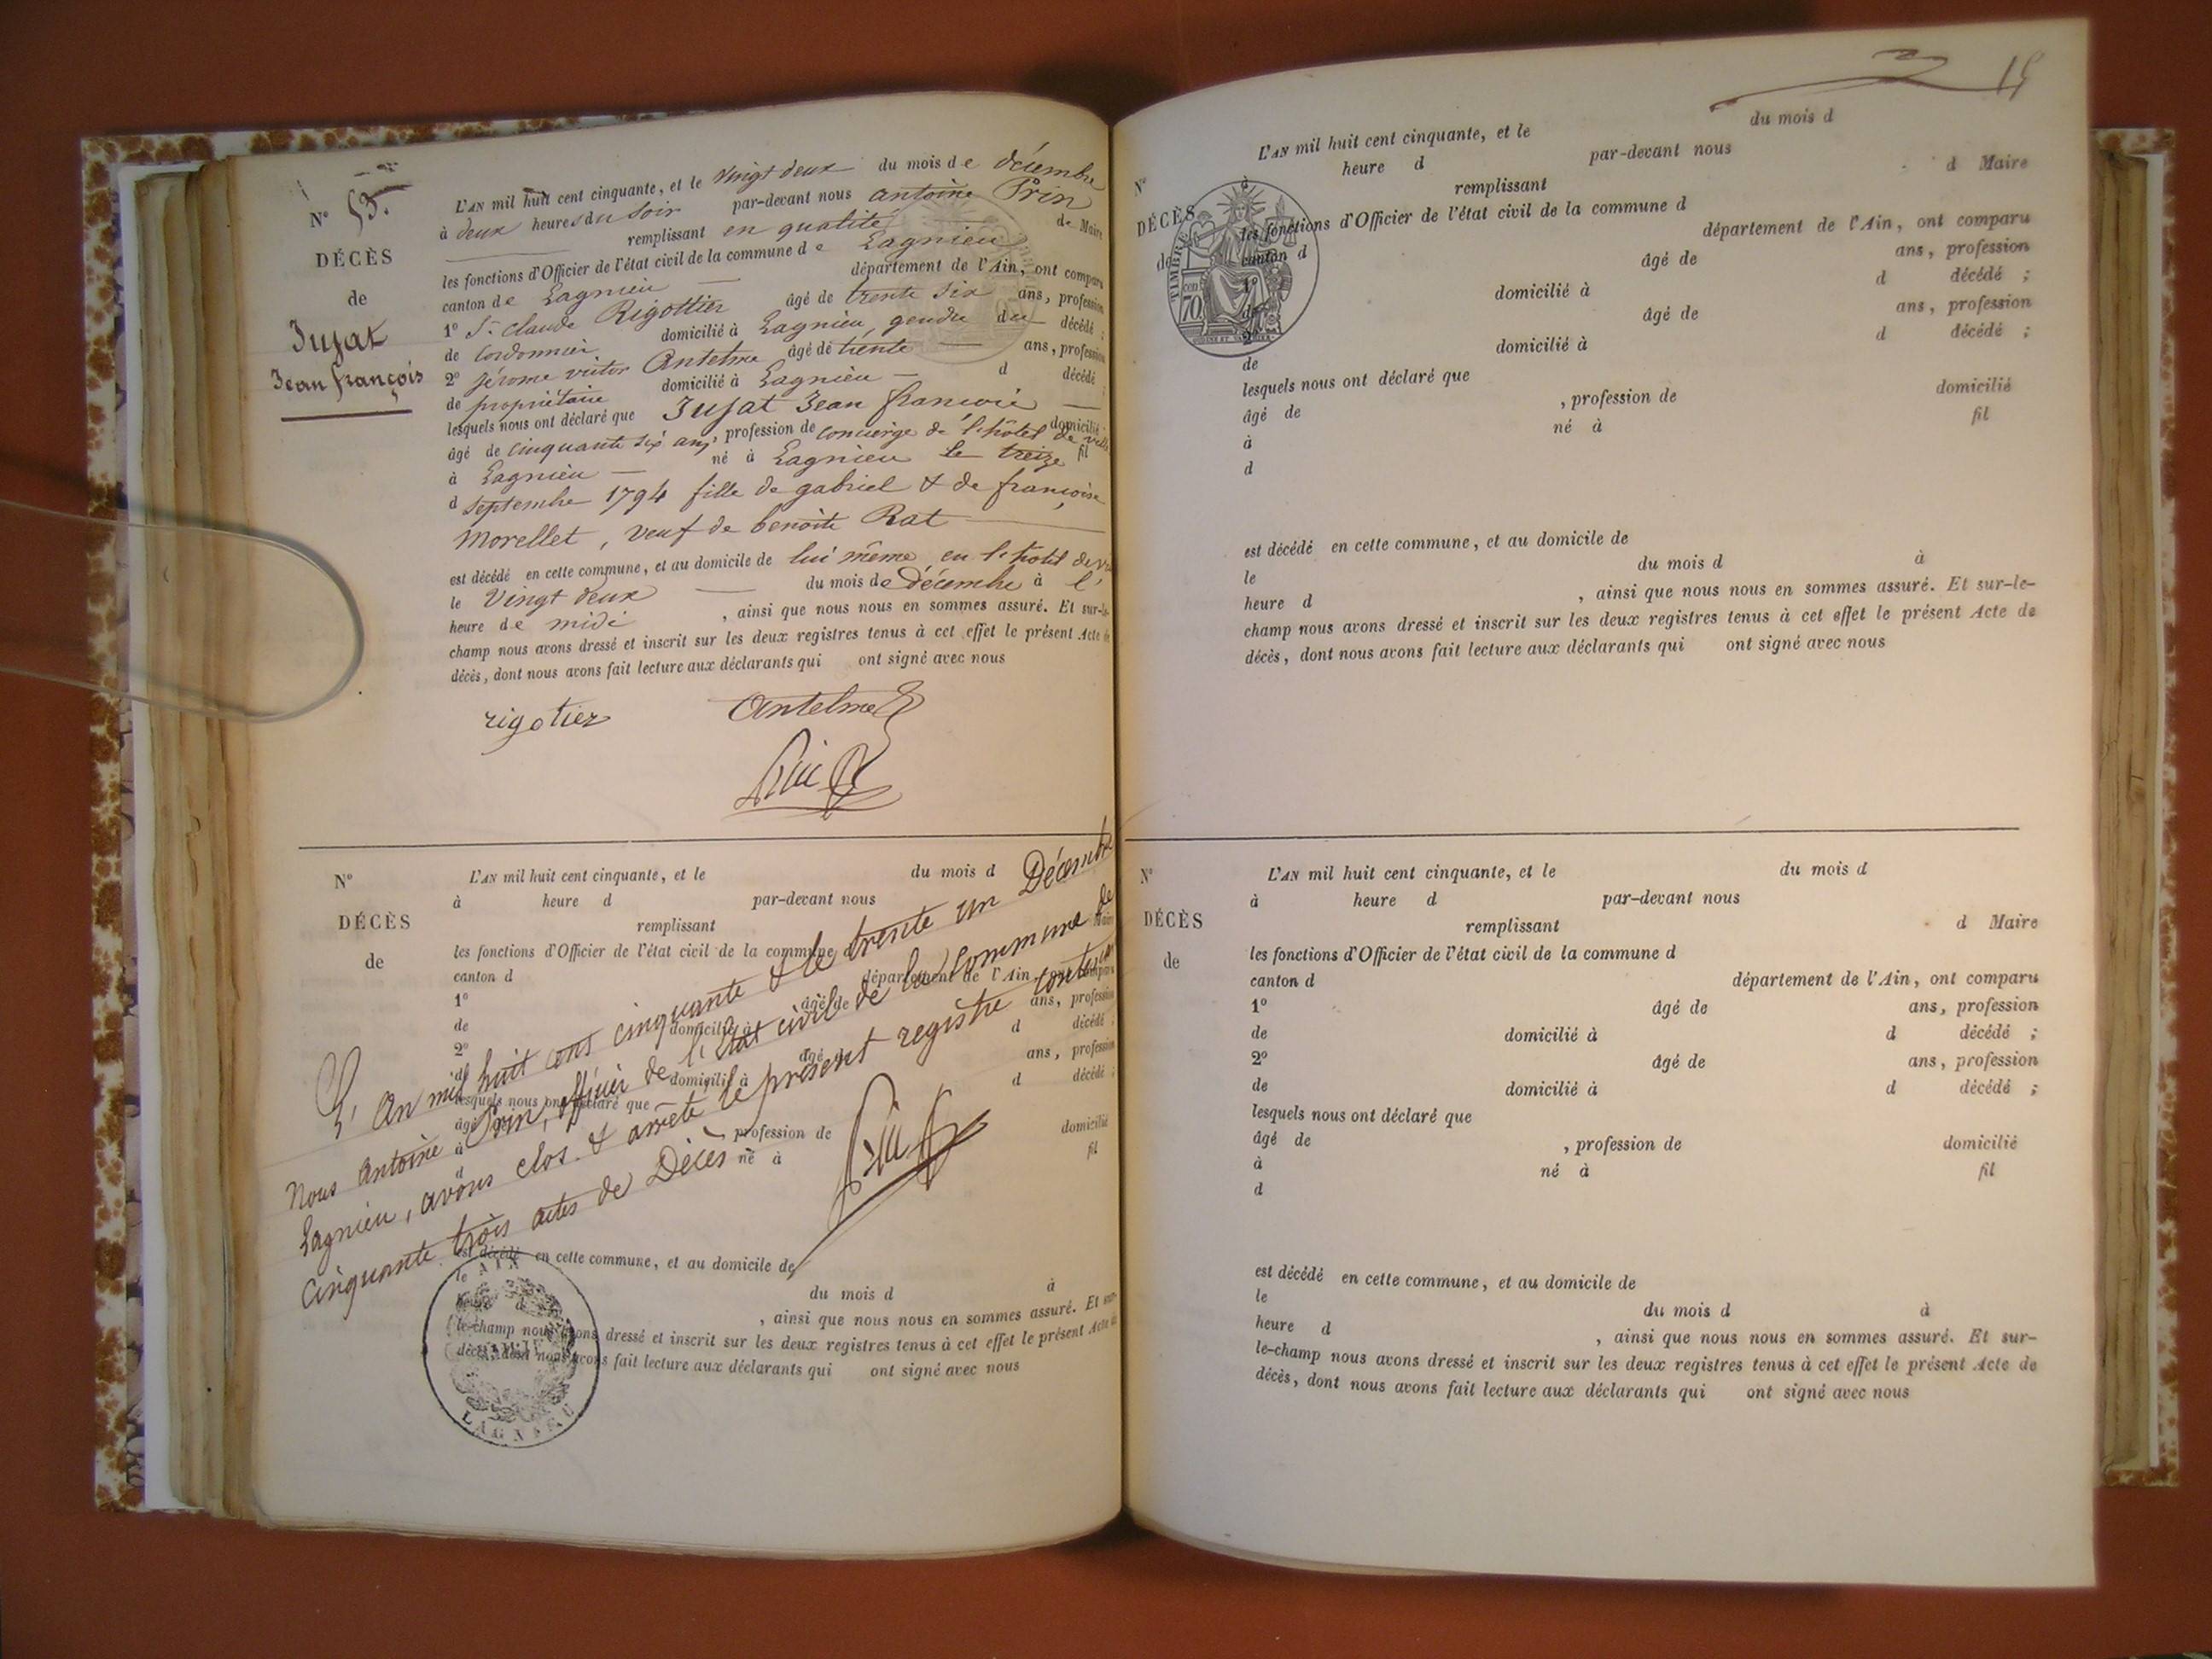 N° 53.
DÉCÈS
de
Jujat
Jean françois
L'AN mil huit cent cinquante, et le vingt deux du mois de décembre
à deux heures du soir par-devant nous antoine Prin
remplissant en qualité de Maire
les fonctions d'Officier de l'état civil de la commune de Lagnieu
canton de Lagnieu département de l'Ain, ont comparu
1° St claude Rigottier âgé de trente six ans, profession
de cordonnier domicilié à Lagnieu, gendre du décédé ;
2° jérome victor Antelme âgé de trente ans, profession
de propriétaire domicilié à Lagnieu d décédé ;
lesquels nous ont déclaré que Jujat Jean françois
âgé de cinquante six ans, profession de concierge de l'hôtel de ville domicilié
à Lagnieu né à Lagnieu le treize fil
d septembre 1794 fille de gabriel & de françoise
Morellet, veuf de benoite Rat
est décédé en cette commune, et au domicile de lui même, en l'hotel de
le Vingt deux du mois de décembre à l'
heure de midi , ainsi que nous nous en sommes assuré. Et sur-le-
champ nous avons dressé et inscrit sur les deux registres tenus à cet effet le présent Acte de
décès, dont nous avons fait lecture aux déclarants qui ont signé avec nous
rigotier antelme
Prin
N°
DÉCÈS
de
L'AN mil huit cent cinquante, et le du mois d
à heure d par-devant nous
remplissant Maire
les fonctions d'Officier de l'état civil de la commune d
canton d département de l'Ain, ont comparu
1° âgé de ans, profession
de domicilié à d décédé ;
2° âgé de ans, profession
de domicilié à d décédé ;
lesquels nous ont déclaré que
âgé de profession de domicilié
à né à fil
d
L'An mil huit cens cinquante & le trente un Décembre
Nous Antoine Prin, officier de l'état civil de la commune de
Lagnieu, avons clos & arrêté le présent registre contenant
Cinquante trois actes de Décès
Prin
est décédé en cette commune, et au domicile de
le du mois d à
heure d , ainsi que nous nous en sommes assuré. Et sur-
le-champ nous avons dressé et inscrit sur les deux registres tenus à cet effet le présent Acte de
décès, dont nous avons fait lecture aux déclarants qui ont signé avec nous
AIN
LAGNIEU
15
N°
DÉCÈS
de
TIMBRE
70
L'AN mil huit cent cinquante, et le du mois d
à heure d par-devant nous
remplissant d Maire
les fonctions d'Officier de l'état civil de la commune d
canton d département de l'Ain, ont comparu
1° âgé de ans, profession
de domicilié à d décédé ;
2° âgé de ans, profession
de domicilié à d décédé ;
lesquels nous ont déclaré que
âgé de , profession de domicilié
à né à fil
d
est décédé en cette commune, et au domicile de
le du mois d à
heure d , ainsi que nous nous en sommes assuré. Et sur-le-
champ nous avons dressé et inscrit sur les deux registres tenus à cet effet le présent Acte de
décès, dont nous avons fait lecture aux déclarants qui ont signé avec nous
N°
DÉCÈS
de
L'AN mil huit cent cinquante, et le du mois d
à heure d par-devant nous
remplissant d Maire
les fonctions d'Officier de l'état civil de la commune d
canton d département de l'Ain, ont comparu
1° âgé de ans, profession
de domicilié à d décédé ;
2° âgé de ans, profession
de domicilié à d décédé ;
lesquels nous ont déclaré que
âgé de , profession de domicilié
à né à fil
d
est décédé en cette commune, et au domicile de
le du mois d à
heure d , ainsi que nous nous en sommes assuré. Et sur-
le-champ nous avons dressé et inscrit sur les deux registres tenus à cet effet le présent Acte de
décès, dont nous avons fait lecture aux déclarants qui ont signé avec nous